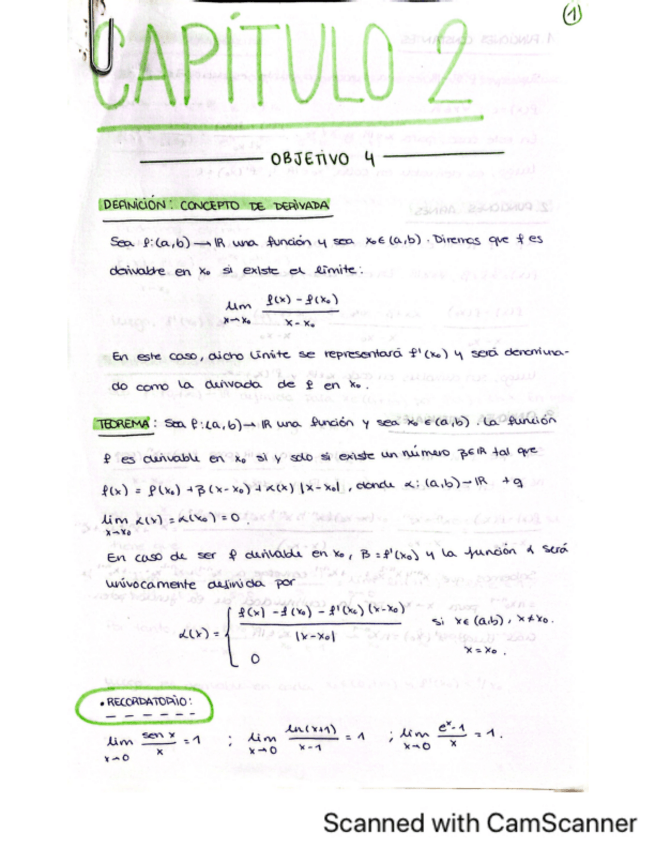 ①
CAPÍTULO 2
OBJETIVO 4
DEFINICIÓN: CONCEPTO DE DERIVADA
Sea f:(a,b)→ℝ una función y sea x₀∈(a,b). Diremos que f es
derivable en x₀ si existe el límite:
lim x→x₀ (f(x) - f(x₀)) / (x - x₀)
En este caso, dicho límite se representará f'(x₀) y será denomina-
do como la derivada de f en x₀.
TEOREMA: Sea f:(a,b)→ℝ una función y sea x₀∈(a,b). La función
f es derivable en x₀ si y solo si existe un número β∈ℝ tal que
f(x) = f(x₀) + β(x-x₀) + α(x) |x-x₀|, donde α:(a,b)→ℝ tq
lim x→x₀ α(x) = α(x₀) = 0.
En caso de ser f derivable en x₀, β = f'(x₀) y la función α será
unívocamente definida por
α(x) = { (f(x) - f(x₀) - f'(x₀)(x-x₀)) / |x-x₀| si x∈(a,b), x≠x₀.
0 x = x₀.
• RECORDATORIO:
lim x→0 sen x / x = 1 ; lim x→0 ln(x+1) / x-1 = 1 ; lim x→0 eˣ-1 / x = 1.
Scanned with CamScanner